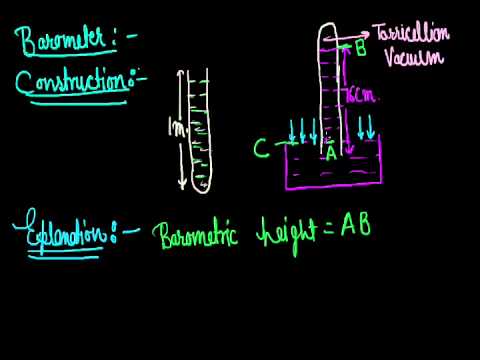 Barometer:-
Construction:-
1m.
Torricellian
Vacuum
B
76cm.
C
A
Explanation:- Barometric height = AB